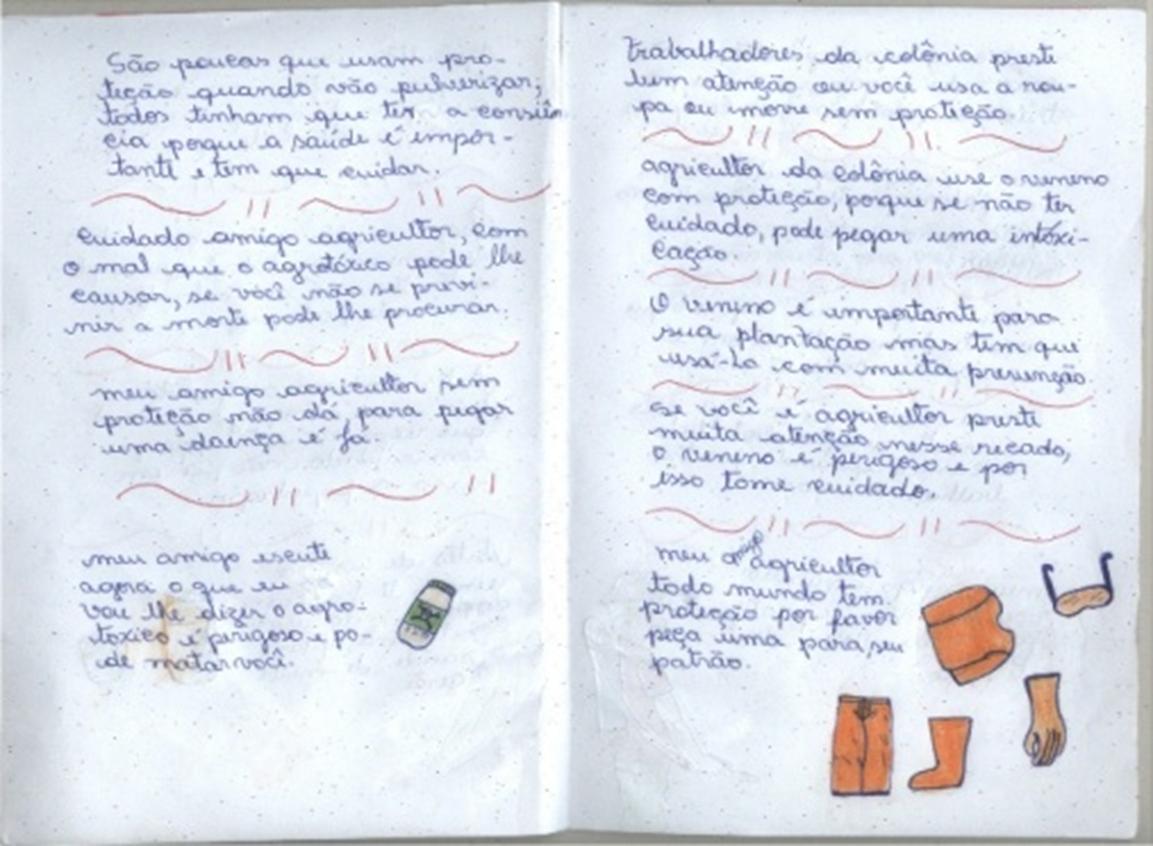 São poucas que usam pro-
teção quando vão pulverizar,
todos tinham que ter a consiên
cia porque a saúde é impor-
tante e tem que cuidar.
cuidado amigo agricultor, com
o mal que o agrotóxico pode lhe
causar, se você não se previ-
nir a morte pode lhe procurar.
meu amigo agricultor sem
proteção não dá para pegar
uma daença é já.
meu amigo escute
agora o que eu
vou lhe dizer o agro-
toxico é perigoso e po-
de matar você.
trabalhadores da colônia preste
tem atenção ou você usa a rou-
pa ou morre sem proteção.
agricultor da colônia use o veneno
com proteção, porque se não ter
cuidado, pode pegar uma intoxi-
cação.
O veneno é importante para
sua plantação mas tem que
usá-lo com muita prevenção.
se você é agricultor preste
muita atenção nesse recado,
o veneno é perigoso e por
isso tome cuidado.
meu amigo agricultor
todo mundo tem
proteção por favor
peça uma para seu
patrão.